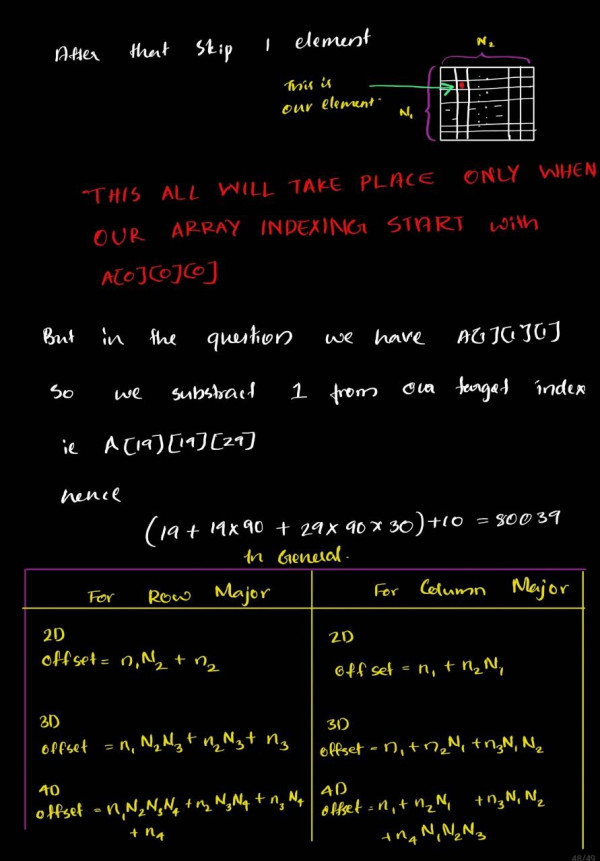 After that skip 1 element
N₂
This is
our element.
N₁
THIS ALL WILL TAKE PLACE ONLY WHEN
OUR ARRAY INDEXING START with
A[0][0][0]
But in the question we have A[1][1][1]
So we substract 1 from our target index
ie A[19][19][29]
hence
(19 + 19×90 + 29×90×30)+10 = 80039
In General.
For Row Major
For Column Major
2D
offset = n₁N₂ + n₂
2D
offset = n₁ + n₂N₁
3D
offset = n₁N₂N₃ + n₂N₃ + n₃
3D
offset = n₁ + n₂N₁ + n₃N₁N₂
4D
offset = n₁N₂N₃N₄ + n₂N₃N₄ + n₃N₄
+ n₄
4D
offset = n₁ + n₂N₁ + n₃N₁N₂
+ n₄N₁N₂N₃
48/49